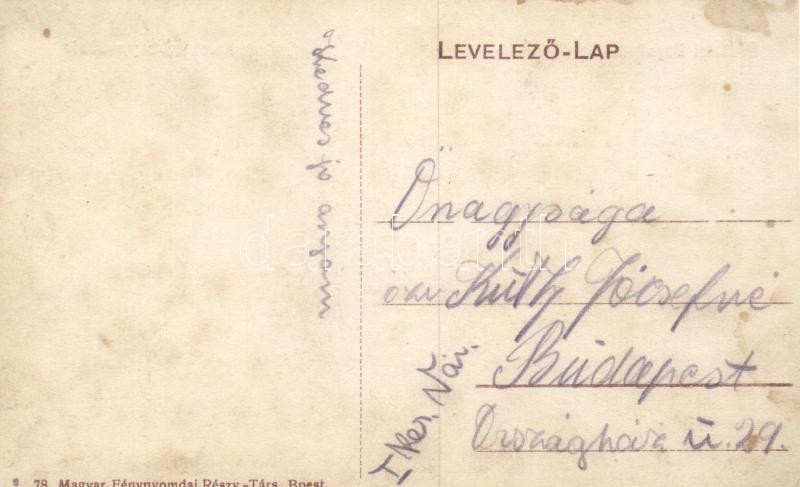 LEVELEZŐ-LAP
Kedves jó anyám
Önagysága
özv Kúthy Józsefné
Budapest
Országház u. 29.
I Ker. Vár.
darabanth
78 Magyar Fénynyomdai Részv.-Társ. Bpest